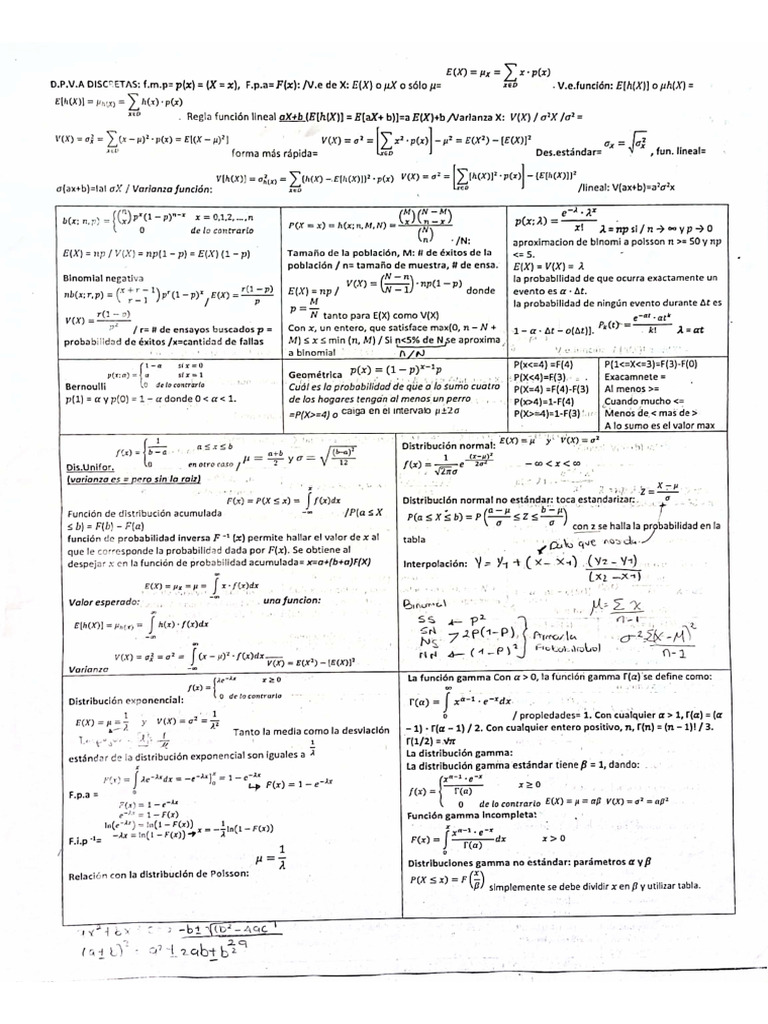 E(X) = μ_X = ∑_{x∈D} x · p(x)
D.P.V.A DISCRETAS: f.m.p= p(x) = (X = x), F.p.a= F(x): /V.e de X: E(X) o μX o sólo μ= . V.e.función: E[h(X)] o μh(X) =
E[h(X)] = μ_{h(X)} = ∑_{x∈D} h(x) · p(x)
. Regla función lineal aX+b (E[h(X)] = E[aX+ b)]=a E(X)+b /Varianza X: V(X) / σ²X /σ² =
V(X) = σ²_x = ∑_{x∈D} (x − μ)² · p(x) = E[(X − μ)²] forma más rápida= V(X) = σ² = [∑_{x∈D} x² · p(x)] − μ² = E(X²) − [E(X)]² Des.estándar= σ_x = √σ²_x , fun. lineal=
σ(ax+b)=lal σX / Varianza función: V[h(X)] = σ²_{h(X)} = ∑_{x∈D} (h(X) − E[h(X)])² · p(X) V(X) = σ² = [∑_{x∈D} [h(X)]² · p(x)] − {E[h(X)]}² /lineal: V(ax+b)=a²σ²x
b(x; n, p) = { (n x) p^x (1 − p)^{n−x} x = 0,1,2, ..., n
0 de lo contrario
E(X) = np / V(X) = np(1 − p) = E(X) (1 − p)
Binomial negativa
nb(x; r, p) = (x + r − 1 r − 1) p^r (1 − p)^x / E(X) = r(1 − p)/p
V(X) = r(1 − p)/p² / r= # de ensayos buscados p =
probabilidad de éxitos /x=cantidad de fallas
P(X = x) = h(x; n, M, N) = (M x)(N − M n − x)/(N n) /N:
Tamaño de la población, M: # de éxitos de la
población / n= tamaño de muestra, # de ensa.
E(X) = np / V(X) = (N − n/N − 1) · np(1 − p) donde
p = M/N tanto para E(X) como V(X)
Con x, un entero, que satisface max(0, n − N +
M) ≤ x ≤ min (n, M) / Si n<5% de N,se aproxima
a binomial n/N
p(x; λ) = e^{−λ} · λ^x / x! λ = np si / n → ∞ y p → 0
aproximacion de binomi a poisson n >= 50 y np
<= 5.
E(X) = V(X) = λ
la probabilidad de que ocurra exactamente un
evento es α · Δt.
la probabilidad de ningún evento durante Δt es
1 − α · Δt − o(Δt). P_k(t) = e^{−αt} · αt^k / k! λ = αt
p(x; α) = { 1 − α si x = 0
α si x = 1
0 de lo contrario
Bernoulli
p(1) = α y p(0) = 1 − α donde 0 < α < 1.
Geométrica p(x) = (1 − p)^{x−1} p
Cuál es la probabilidad de que a lo sumo cuatro
de los hogares tengan al menos un perro
=P(X>=4) o caiga en el intervalo μ±2σ
P(x<=4) =F(4)
P(X<4)=F(3)
P(X=4) =F(4)-F(3)
P(x>4)=1-F(4)
P(X>=4)=1-F(3)
P(1<=X<=3)=F(3)-F(0)
Exacamnete =
Al menos >=
Cuando mucho <=
Menos de < mas de >
A lo sumo es el valor max
f(x) = { 1/(b − a) a ≤ x ≤ b
0 en otro caso / μ = (a+b)/2 y σ = √((b−a)²/12)
Dis.Unifor.
(varianza es = pero sin la raiz)
F(x) = P(X ≤ x) = ∫_{−∞}^{x} f(x)dx
Función de distribución acumulada /P(a ≤ X
≤ b) = F(b) − F(a)
función de probabilidad inversa F ⁻¹ (x) permite hallar el valor de x al
que le corresponde la probabilidad dada por F(x). Se obtiene al
despejar x en la función de probabilidad acumulada= x=a+(b+a)F(X)
E(X) = μ_X = μ = ∫ x · f(x)dx
Valor esperado: una funcion:
E[h(X)] = μ_{h(X)} = ∫ h(x) · f(x)dx
V(X) = σ²_X = σ² = ∫ (x − μ)² · f(x)dx V(X) = E(X²) − [E(X)]²
Varianza
Distribución normal: E(X) = μ y V(X) = σ²
f(x) = 1/(√2πσ) e^{(x−μ)²/2σ²} − ∞ < x < ∞
Distribución normal no estándar: toca estandarizar: Z = (X − μ)/σ
P(a ≤ X ≤ b) = P((a − μ)/σ ≤ Z ≤ (b − μ)/σ) con z se halla la probabilidad en la
tabla
Interpolación: Y = Y1 + (X − X1) (Y2 − Y1)/(X2 − X1)
Binomial
SS ← P²
SN
NS > 2P(1-P)
NN ← (1-P)²
μ = Σ X / n-1
σ² Σ(X-M)² / n-1
f(x) = { λe^{−λx} x ≥ 0
0 de lo contrario
Distribución exponencial:
E(X) = μ = 1/λ y V(X) = σ² = 1/λ²
Tanto la media como la desviación
estándar de la distribución exponencial son iguales a 1/λ
F(x) = ∫_0^x λe^{−λx}dx = −e^{−λx}|_0^x = 1 − e^{−λx} ↳ F(x) = 1 − e^{−λx}
F.p.a =
F(x) = 1 − e^{−λx}
e^{−λx} = 1 − F(x)
ln(e^{−λx}) = ln(1 − F(x))
−λx = ln(1 − F(x)) → x = −1/λ ln(1 − F(x))
F.i.p ⁻¹=
μ = 1/λ
Relación con la distribución de Poisson:
La función gamma Con α > 0, la función gamma Γ(α) se define como:
Γ(α) = ∫_0^∞ x^{α−1} · e^{−x}dx
/ propiedades= 1. Con cualquier α > 1, Γ(α) = (α
− 1) · Γ(α − 1) / 2. Con cualquier entero positivo, n, Γ(n) = (n − 1)! / 3.
Γ(1/2) = √π
La distribución gamma:
La distribución gamma estándar tiene β = 1, dando:
f(x) = { x^{α−1} · e^{−x} / Γ(α) x ≥ 0
0 de lo contrario E(X) = μ = αβ V(X) = σ² = αβ²
Función gamma incompleta:
F(x) = ∫_0^x x^{α−1} · e^{−x} / Γ(α) dx x > 0
Distribuciones gamma no estándar: parámetros α y β
P(X ≤ x) = F(x/β) simplemente se debe dividir x en β y utilizar tabla.
-b± √(b² - 4ac